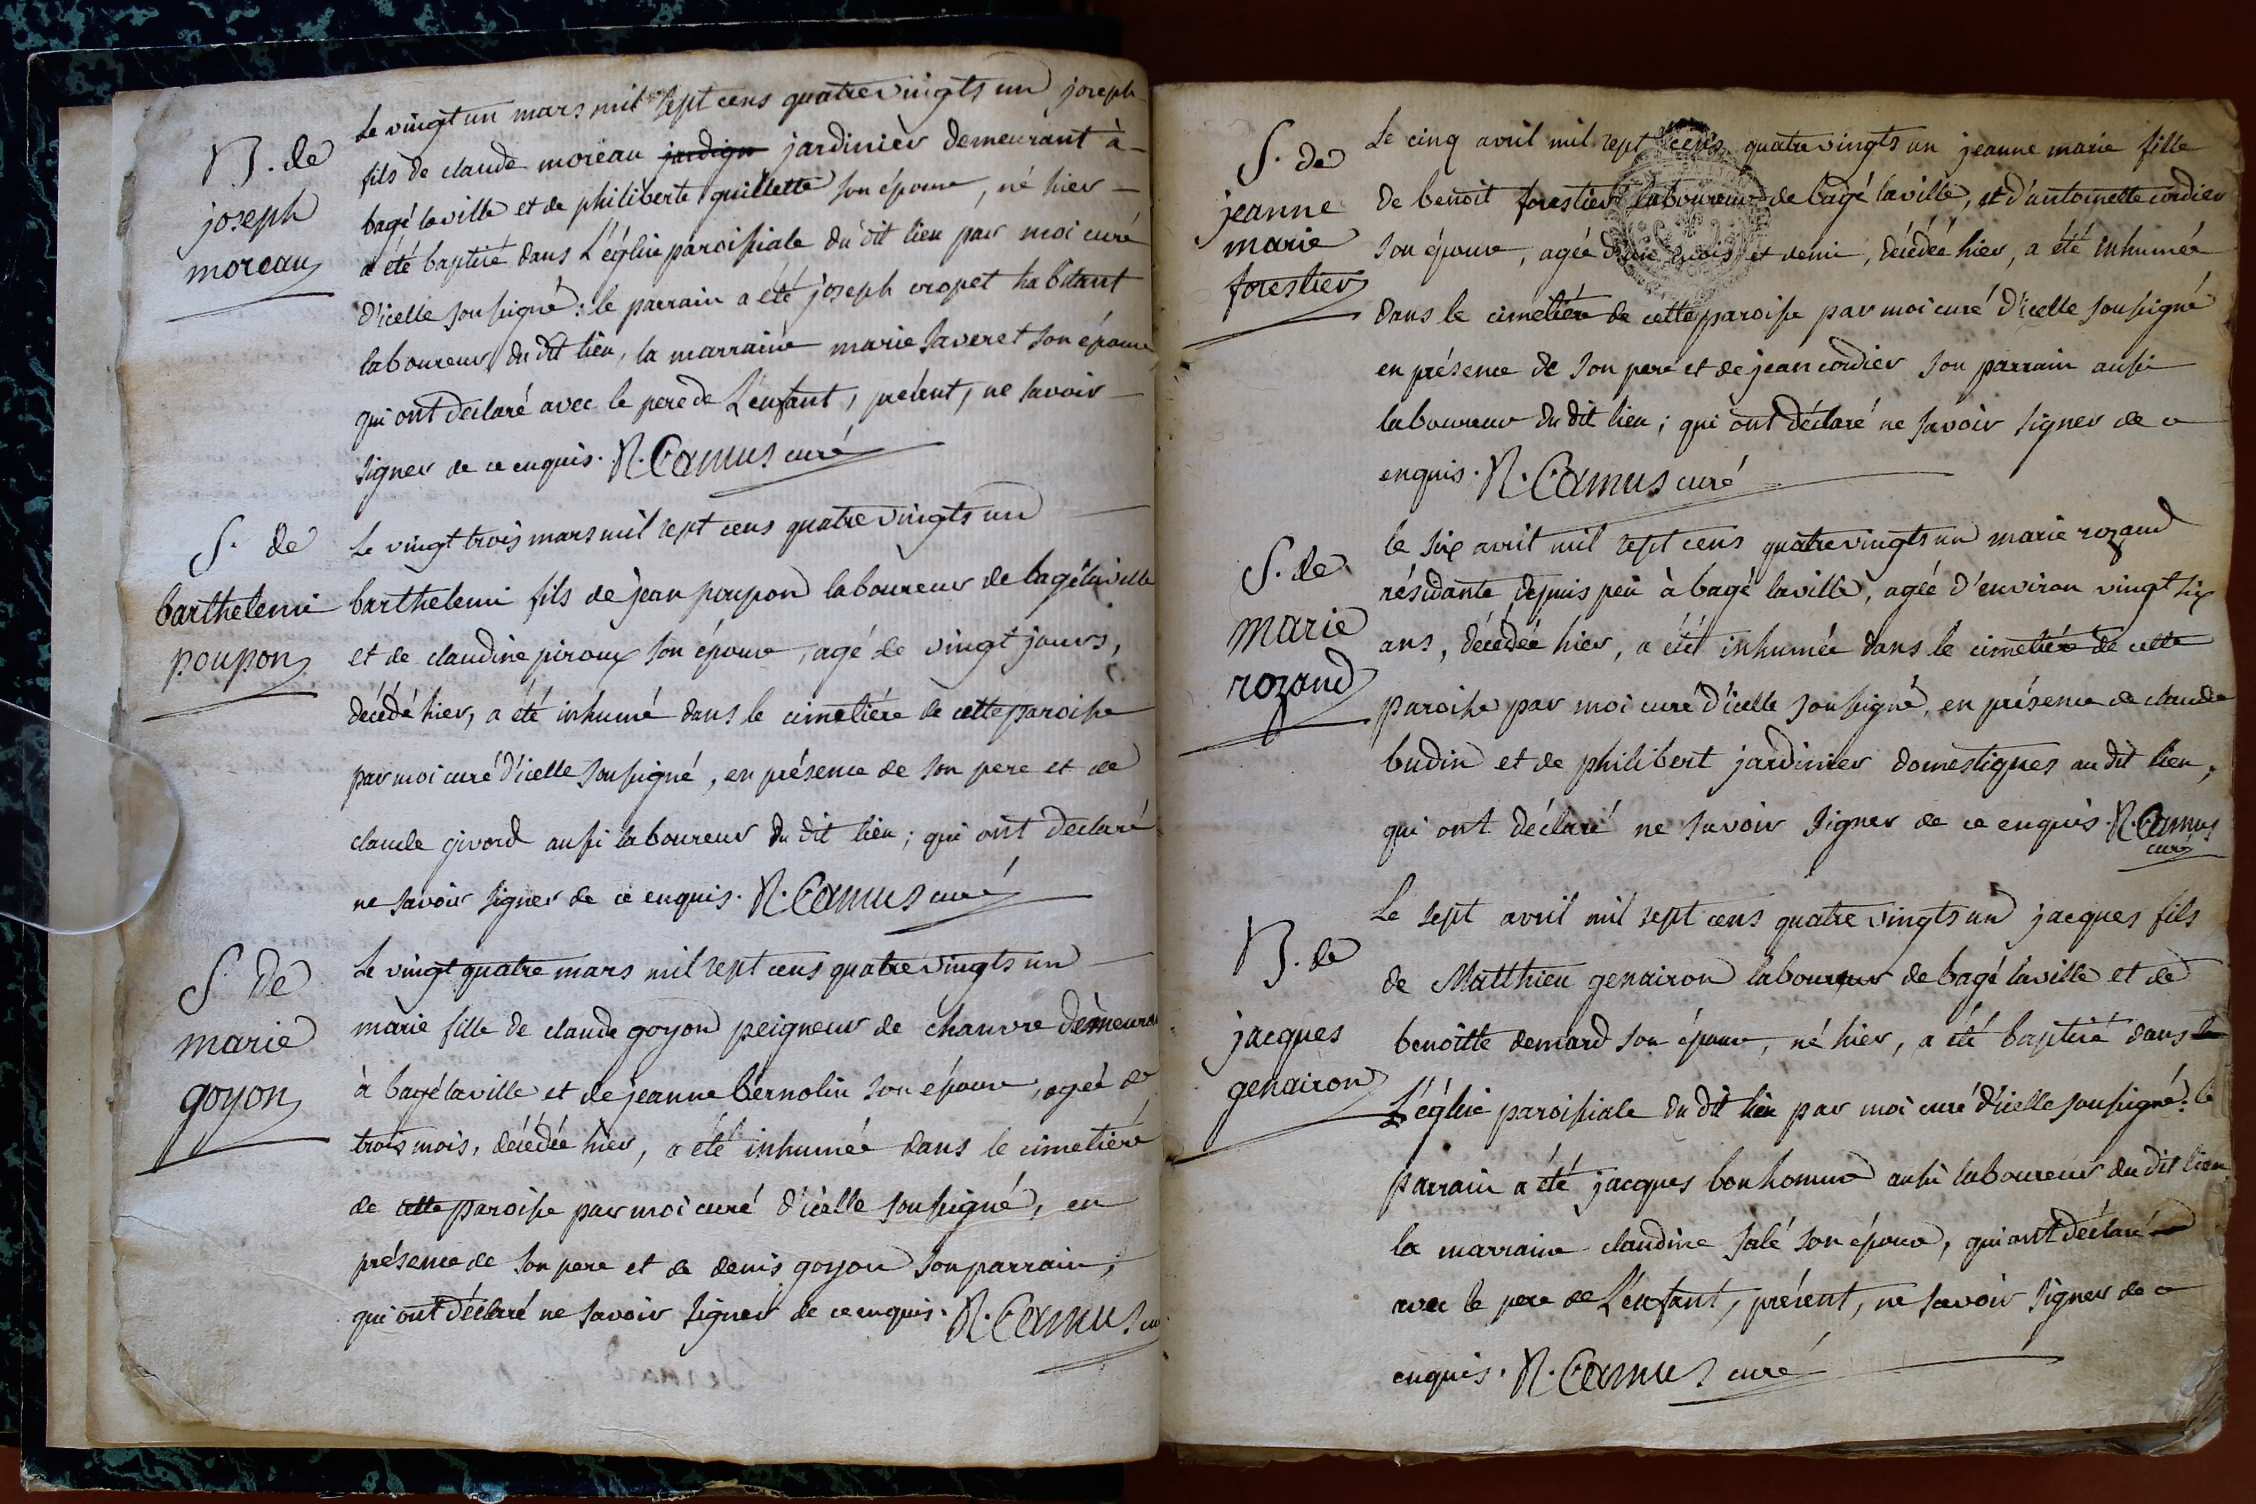 B. de
joseph
moreau
Le vingt un mars mil sept cens quatre vingts un joseph
fils de claude moreau jardign jardinier demeurant à
bagé laville et de philiberte guillette son épouse, né hier
a été baptisé dans L'église paroissiale du dit lieu par moi curé
d'icelle soussigné : le parrain a été joseph cropet habitant
laboureur du dit lieu, la marraine marie saveret son épouse
qui ont declaré avec le pere de L'enfant, présent, ne savoir
signer de ce enquis. N. Camus curé
S. de
barthelemi
poupon
Le vingt trois mars mil sept cens quatre vingts un
barthelemi fils de jean poupon laboureur de bagé laville
et de claudine piroux son épouse, agé de vingt jours,
décédé hier, a été inhumé dans le cimetiére de cette paroisse
par moi curé d'icelle soussigné, en présence de son pere et de
claude givord aussi laboureur du dit lieu ; qui ont declaré
ne savoir signer de ce enquis. N. Camus curé
S. de
marie
goyon
Le vingt quatre mars mil sept cens quatre vingts un
marie fille de claude goyon peigneur de chanvre demeura
à bagé laville et de jeanne bernolin son épouse, agée de
trois mois, décédée hier, a été inhumée dans le cimetiére
de cette paroisse par moi curé d'icelle soussigné, en
présence de son pere et de denis goyon son parrain,
qui ont déclaré ne savoir signer de ce enquis. N. Camus cu
S. de
jeanne
marie
forestier
Le cinq avril mil sept cens quatre vingts un jeanne marie fille
de benoit forestier laboureur de bagé laville, et d'antoinette cordier
son épouse, agée d'un mois et demi, décédée hier, a été inhumée
dans le cimetiére de cette paroisse par moi curé d'icelle soussigné
en présence de son pere et de jean cordier son parrain aussi
laboureur du dit lieu ; qui ont déclaré ne savoir signer de ce
enquis. N. Camus curé
S. de
marie
rozand
le six avril mil sept cens quatre vingts un marie rozand
résidante depuis peu à bagé laville, agée d'environ vingt six
ans, décédée hier, a été inhumée dans le cimetiére de cette
paroisse par moi curé d'icelle soussigné, en présence de claude
budin et de philibert jardinier domestiques au dit lieu,
qui ont déclaré ne savoir signer de ce enquis. N. Camus
curé
B. de
jacques
genairon
Le sept avril mil sept cens quatre vingts un jacques fils
de Matthieu genairon laboureur de bagé laville et de
benoitte demard son épouse, né hier, a été baptisé dans le
L'église paroissiale du dit lieu par moi curé d'icelle soussigné : le
parrain a été jacques bonhomme aussi laboureur du dit lieu
la marraine claudine salé son épouse, qui ont déclaré
avec le pere de L'enfant, présent, ne savoir signer de ce
enquis. N. Camus curé